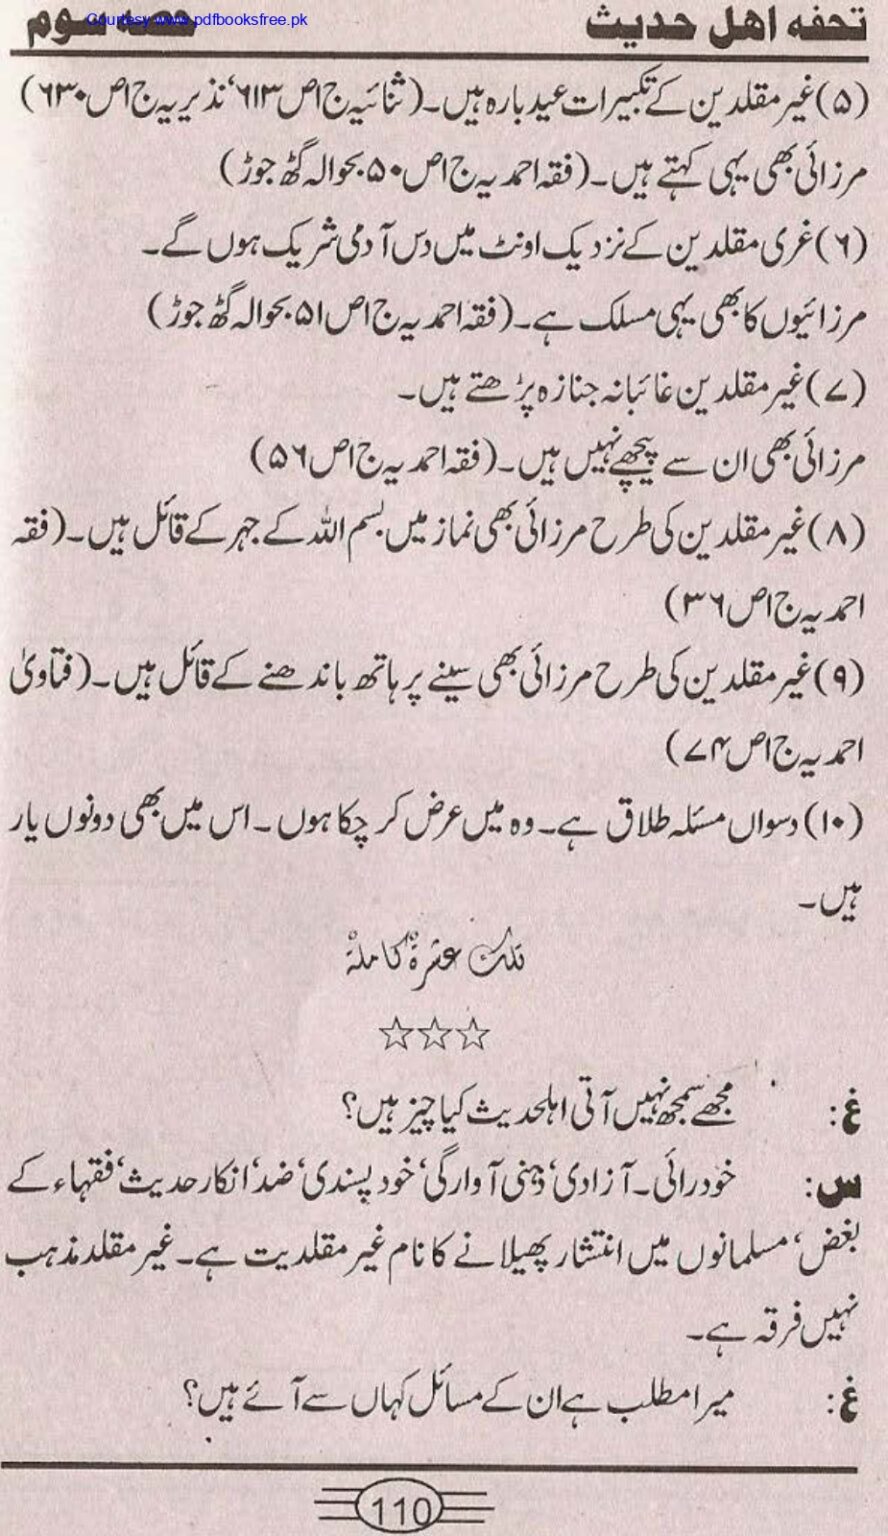 تحفہ اھل حدیث
حصہ سوم
Courtesy www.pdfbooksfree.pk
(۵) غیر مقلدین کے تکبیرات عید بارہ ہیں۔ (ثنائیہ ج اص ۶۱۳‘ نذیریہ ج اص ۶۳۰)
مرزائی بھی یہی کہتے ہیں۔ (فقہ احمدیہ ج اص ۵۰ بحوالہ گٹھ جوڑ)
(۶) غری مقلدین کے نزدیک اونٹ میں دس آدمی شریک ہوں گے۔
مرزائیوں کا بھی یہی مسلک ہے۔ (فقہ احمدیہ ج اص ۵۱ بحوالہ گٹھ جوڑ)
(۷) غیر مقلدین غائبانہ جنازہ پڑھتے ہیں۔
مرزائی بھی ان سے پیچھے نہیں ہیں۔ (فقہ احمدیہ ج اص ۵۶)
(۸) غیر مقلدین کی طرح مرزائی بھی نماز میں بسم اللہ کے جہر کے قائل ہیں۔ (فقہ
احمدیہ ج اص ۳۶)
(۹) غیر مقلدین کی طرح مرزائی بھی سینے پر ہاتھ باندھنے کے قائل ہیں۔ (فتاویٰ
احمدیہ ج اص ۷۴)
(۱۰) دسواں مسئلہ طلاق ہے۔ وہ میں عرض کر چکا ہوں۔ اس میں بھی دونوں یار
ہیں۔
تلک عشرۃٌ کاملۃٌ
☆☆☆
غ: مجھے سمجھ نہیں آتی اہلحدیث کیا چیز ہیں؟
س: خودرائی۔ آزادی‘ ذہنی آوارگی‘ خود پسندی‘ ضد‘ انکار حدیث‘ فقہاء کے
بغض‘ مسلمانوں میں انتشار پھیلانے کا نام غیر مقلدیت ہے۔ غیر مقلد مذہب
نہیں فرقہ ہے۔
غ: میرا مطلب ہے ان کے مسائل کہاں سے آئے ہیں؟
110